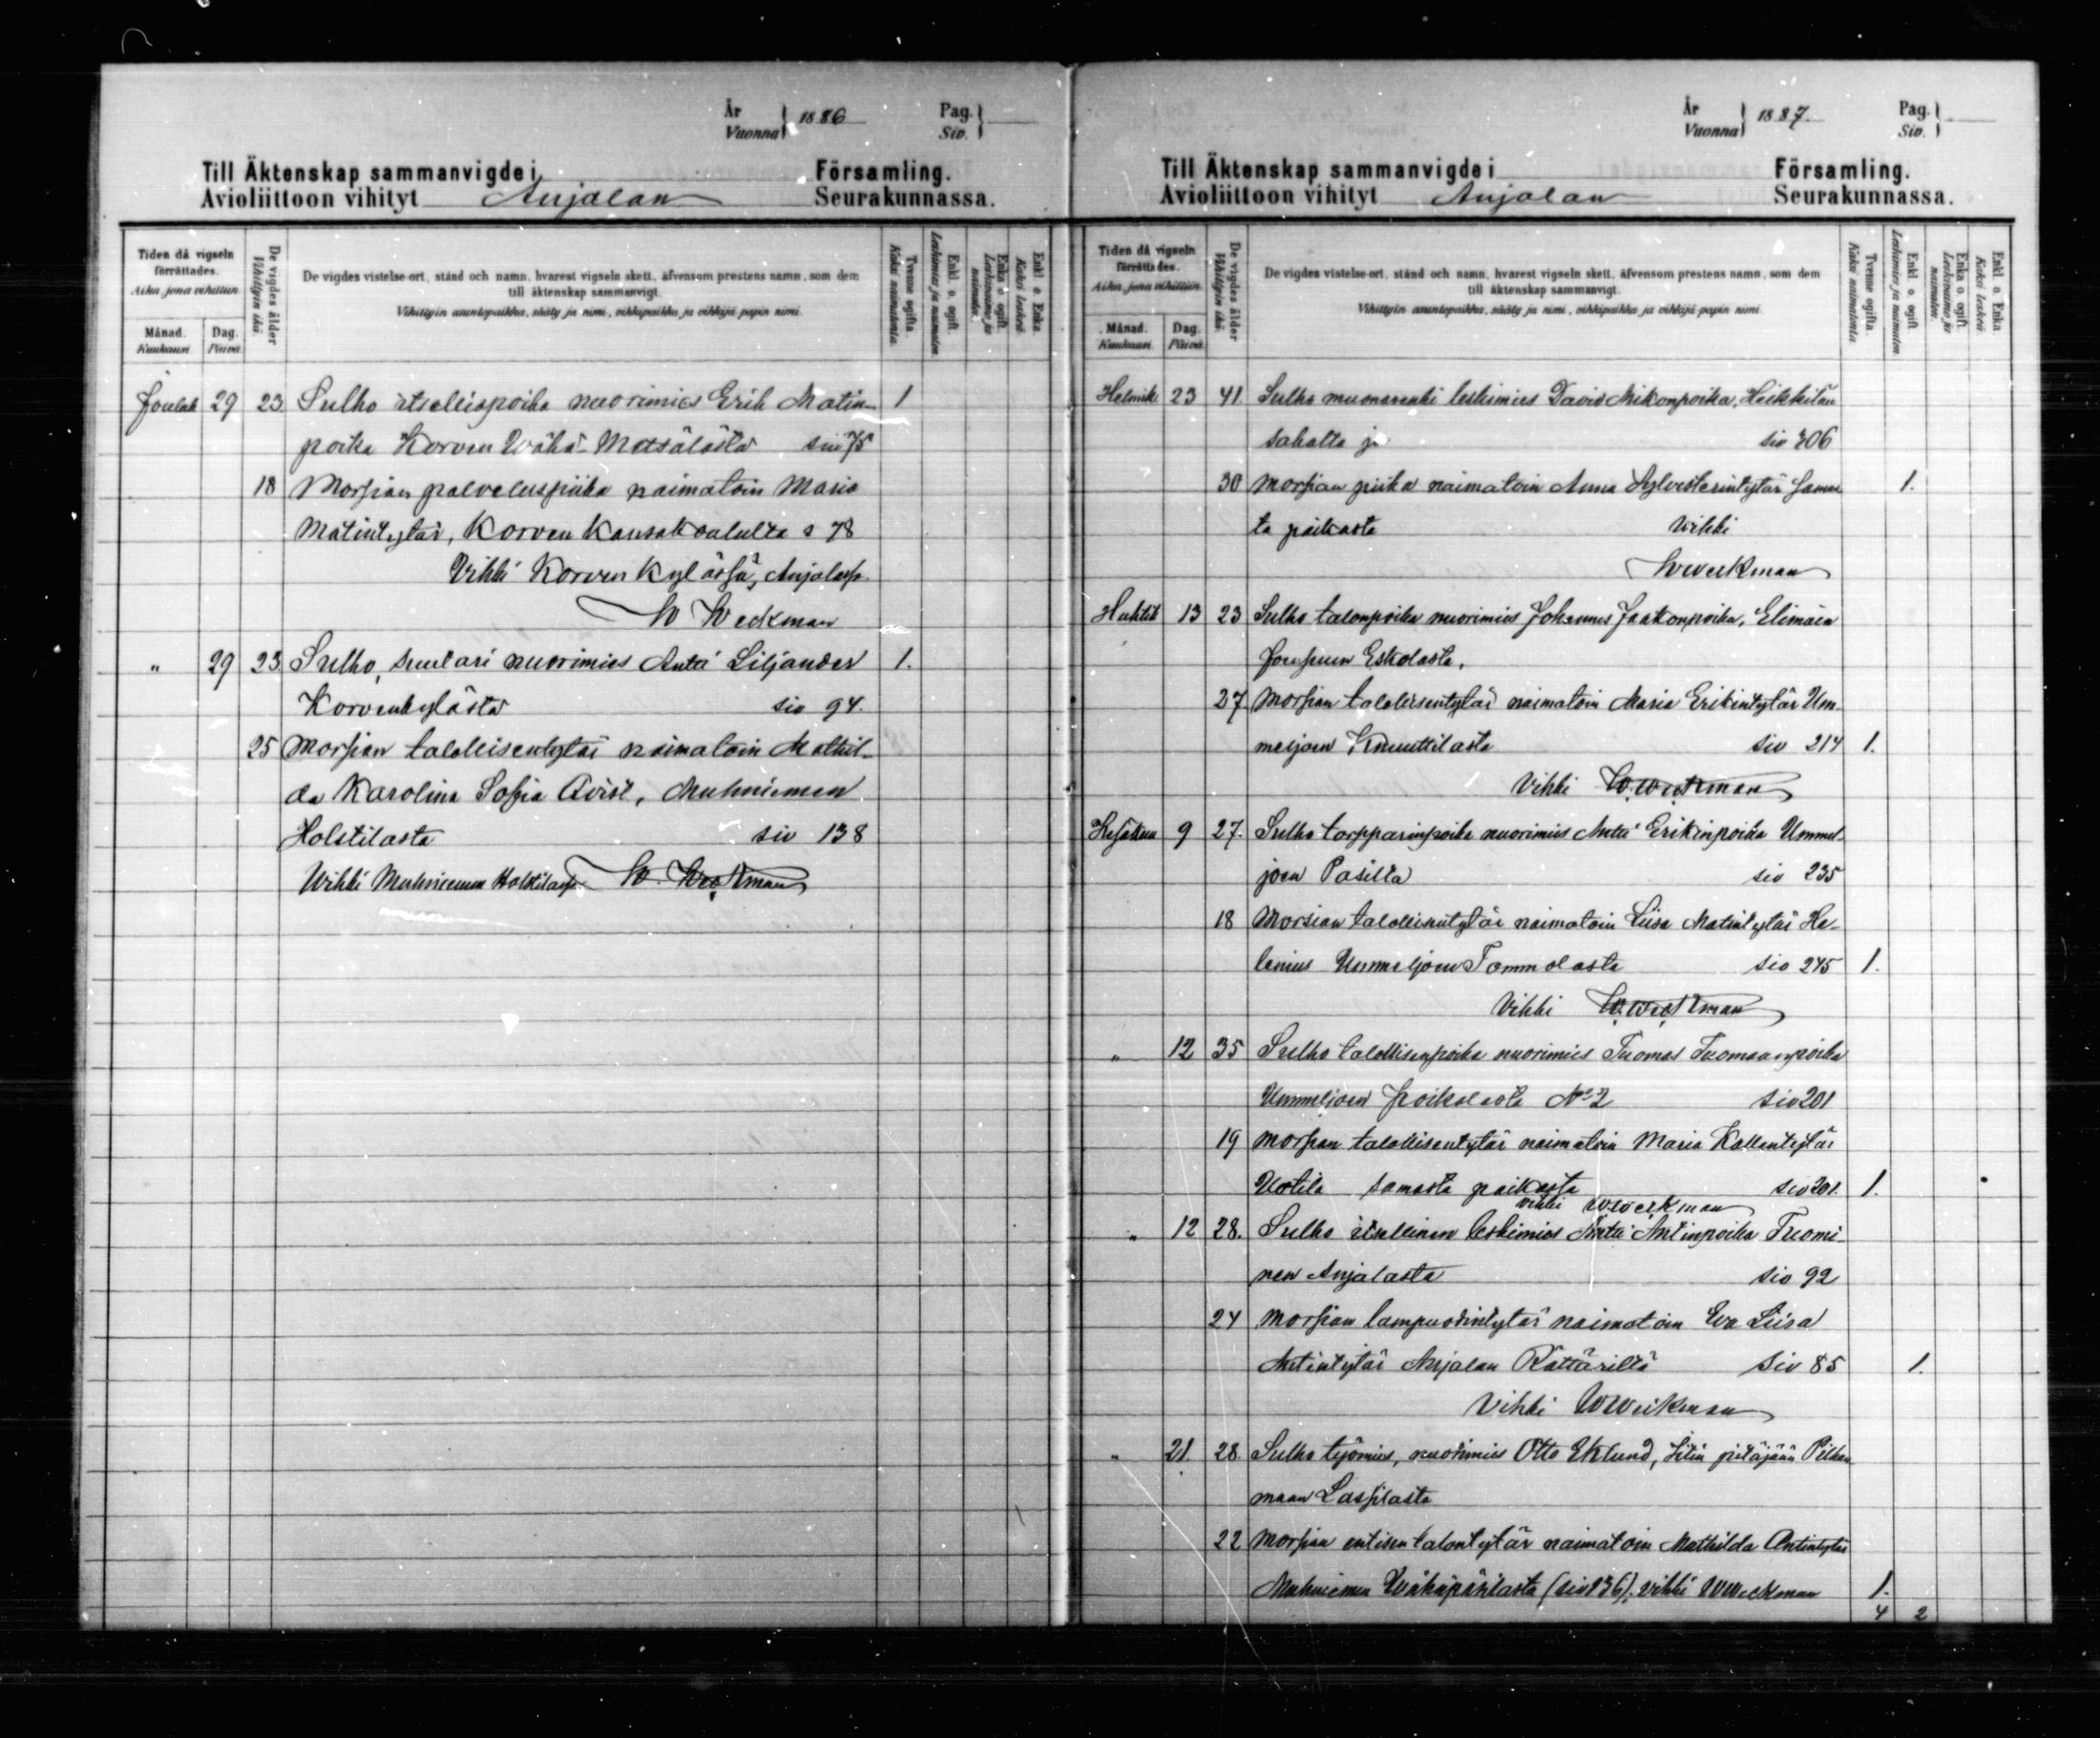 År
Vuonna } 1886
Pag.
Siv. }
Till Äktenskap sammanvigde i Församling.
Avioliittoon vihityt Anjalan Seurakunnassa.
Tiden då vigseln förrättades.
Aika, jona vihittiin.
Månad.
Kuukausi.
Dag.
Päivä.
De vigdes ålder
Vihittyin ikä.
De vigdes vistelse-ort, stånd och namn, hvarest vigseln skett, äfvensom prestens namn, som dem
till äktenskap sammanvigt.
Vihittyin asuntopaikka, sääty ja nimi, vihkipaikka ja vihkijä-papin nimi.
Tvenne ogifta.
Kaksi naimatonta.
Enkl. o. ogift.
Leskimies ja naimaton.
Enka o ogift.
Leskivaimo ja naimaton.
Enkl o. Enka.
Kaksi leskeä.
Jouluk 29 23 Sulho itsellispoika nuorimies Erik Matin- 1
poika Korven Wähä-Mattälästä siv 75
18 Morsian palveluspiika naimatoin Maria
Matintytär, Korven Kansakoululta s 78
Vihki Korven Kylässä, Anjalassa.
W Weckman
" 29 23 Sulho, suutari nuorimies Antti Liljander 1.
Korvenkylästä siv 94.
25 Morsian talollisentytär naimatoin Mathil-
da Karolina Sofia Qvist, Muhniemen
Holstilasta siv 138
Wihki Muhniemen Holstilassa W. Weckman
År
Vuonna } 1887.
Pag.
Siv. }
Till Äktenskap sammanvigde i Församling.
Avioliittoon vihityt Anjalan Seurakunnassa.
Tiden då vigseln förrättades.
Aika, jona vihittiin.
Månad.
Kuukausi.
Dag.
Päivä.
De vigdes ålder
Vihittyin ikä.
De vigdes vistelse-ort, stånd och namn, hvarest vigseln skett, äfvensom prestens namn, som dem
till äktenskap sammanvigt.
Vihittyin asuntopaikka, sääty ja nimi, vihkipaikka ja vihkijä-papin nimi.
Tvenne ogifta.
Kaksi naimatonta.
Enkl. o. ogift.
Leskimies ja naimaton.
Enka o ogift.
Leskivaimo ja naimaton.
Enkl o. Enka
Kaksi leskeä.
Helmik 23 41 Sulho muonarenki leskimies David Mikonpoika, Heikkilän
sahalta ja siv 306
30 Morsian piika naimatoin Anna Sylvesterintytär samas- 1.
ta paikasta Vihki
W Weckman
Huhtik 13 23 Sulho talonpoika nuorimies Johannes Jaakonpoika, Elimäen
Eskolasta,
27 Morsian talollisentytär naimatoin Maria Erikintytär Um-
meljoen Knuuttilasta siv 214 1.
Vihki W. Weckman
Kesäkuu 9 27. Sulho torpparinpoika nuorimies Antti Erikinpoika Ummel-
joen Pasilta siv 235
18 Morsian talollisentytär naimatoin Liisa Matintytär He-
lenius Ummeljoen Tommolasta siv 245 1.
Vihki W. Weckman
" 12 35 Sulho talollisenpoika nuorimies Tuomas Tuomaanpoika
Ummeljoen Poikolasta No 2 siv 201
19 Morsian talollisentytär naimatoin Maria Kallentytär
Uotila samasta paikasta siv 201. 1.
Vihki W Weckman
" 12 28. Sulho itsellinen leskimies Antti Antinpoika Tuomi-
nen Anjalasta siv 92
24 Morsian lampuodintytär naimatoin Eva Liisa
Antintytär Anjalan Rättäriltä siv 85 1.
Vihki W Weckman
" 21. 28. Sulho työmies, nuorimies Otto Eklund, Iitin pitäjään
maan Lassilasta
22 Morsian entisen talontytär naimatoin Mathilda Antintytär
Muhniemen (siv 136), vihki W Weckman 1.
4 2